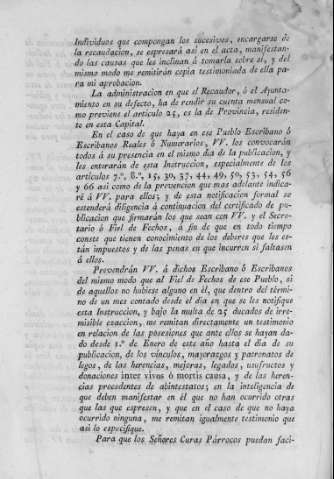 Individuos que compongan los sucesivos, encargarse de
la recaudacion, se espresará asi en el acta, manifestan-
do las causas que les inclinan á tomarla sobre sí, y del
mismo modo me remitirán copia testimoniada de ella pa-
ra mi aprobacion.
La administracion en que el Recaudor, ó el Ayunta-
miento en su defecto, ha de rendir su cuenta mensual co-
mo previene el articulo 25, es la de Provincia, residen-
te en esta Capital.
En el caso de que haya en ese Pueblo Escribano ó
Escribanos Reales ó Numerarios, VV. los convocarán
todos á su presencia en el mismo dia de la publicacion, y
les enterarán de esta Instruccion, especialmente de los
articulos 7.º, 8.º, 15, 30, 37, 44, 49, 50, 53, 54, 56
y 66 asi como de la prevencion que mas adelante indica-
ré á VV. para ellos; y de esta notificacion formal se
estenderá diligencia á continuacion del certificado de pu-
blicacion que firmarán los que sean con VV. y el Secre-
tario ó Fiel de Fechos, á fin de que en todo tiempo
conste que tienen conocimiento de los deberes que les es-
tán impuestos y de las penas en que incurren si faltasen
á ellos.
Prevendrán VV. á dichos Escribano ó Escribanos
del mismo modo que al Fiel de Fechos de ese Pueblo, si
de aquellos no hubiese alguno en él, que dentro del térmi-
no de un mes contado desde el dia en que se les notifique
esta Instruccion, y bajo la multa de 25 ducados de irre-
misible exaccion, me remitan directamente un testimonio
en relacion de las posesiones que ante ellos se hayan da-
do desde 1.º de Enero de este año hasta el dia de su
publicacion, de los vínculos, mayorazgos y patronatos de
legos, de las herencias, mejoras, legados, usufructos y
donaciones inter vivos ó mortis causa, y de las heren-
cias procedentes de abintestatos; en la inteligencia de
que deben manifestar en él que no han ocurrido otras
que las que espresen, y que en el caso de que no haya
ocurrido ninguna, me remitan igualmente testimonio que
asi lo especifique.
Para que los Señores Curas Párrocos puedan faci-